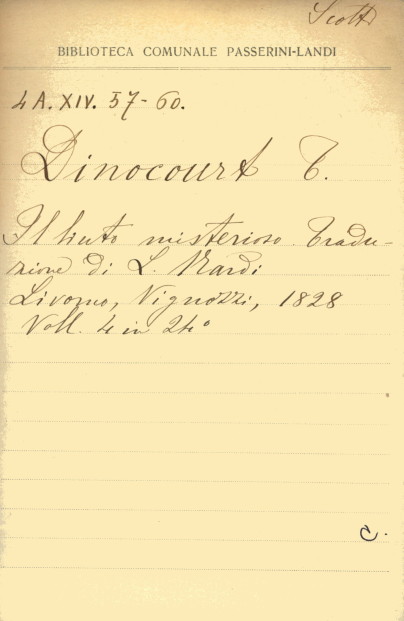 Scotti
BIBLIOTECA COMUNALE PASSERINI-LANDI
4 A. XIV. 57-60.
Dinocourt T.
Il liuto misterioso. Tradu-
zione di L. Nardi
Livorno, Vignozzi, 1828
Voll. 4 in 24°
C.